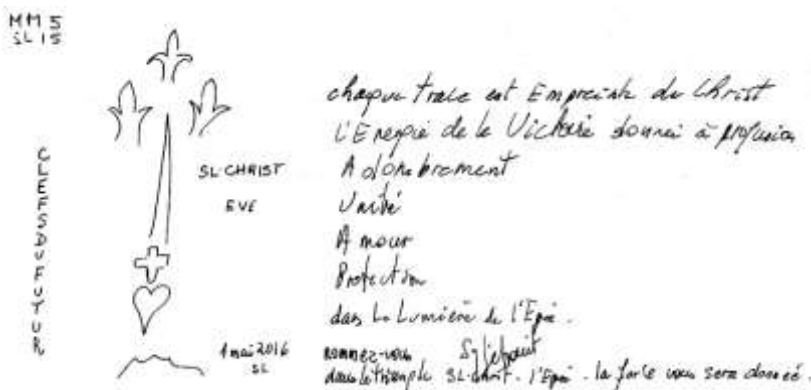 MM 5
SL 15
CLEFSDUFUTUR
SL-CHRIST
EVE
1 mai 2016
SL
chaque trace est Empreinte du Christ
L'Energie de la Victoire donnée à profusion
Adombrement
Unité
Amour
Protection
dans La Lumière de l'Epée.
nommez-vous
dans le triomphe SL-Christ. l'Epée. la force vous sera donnée.